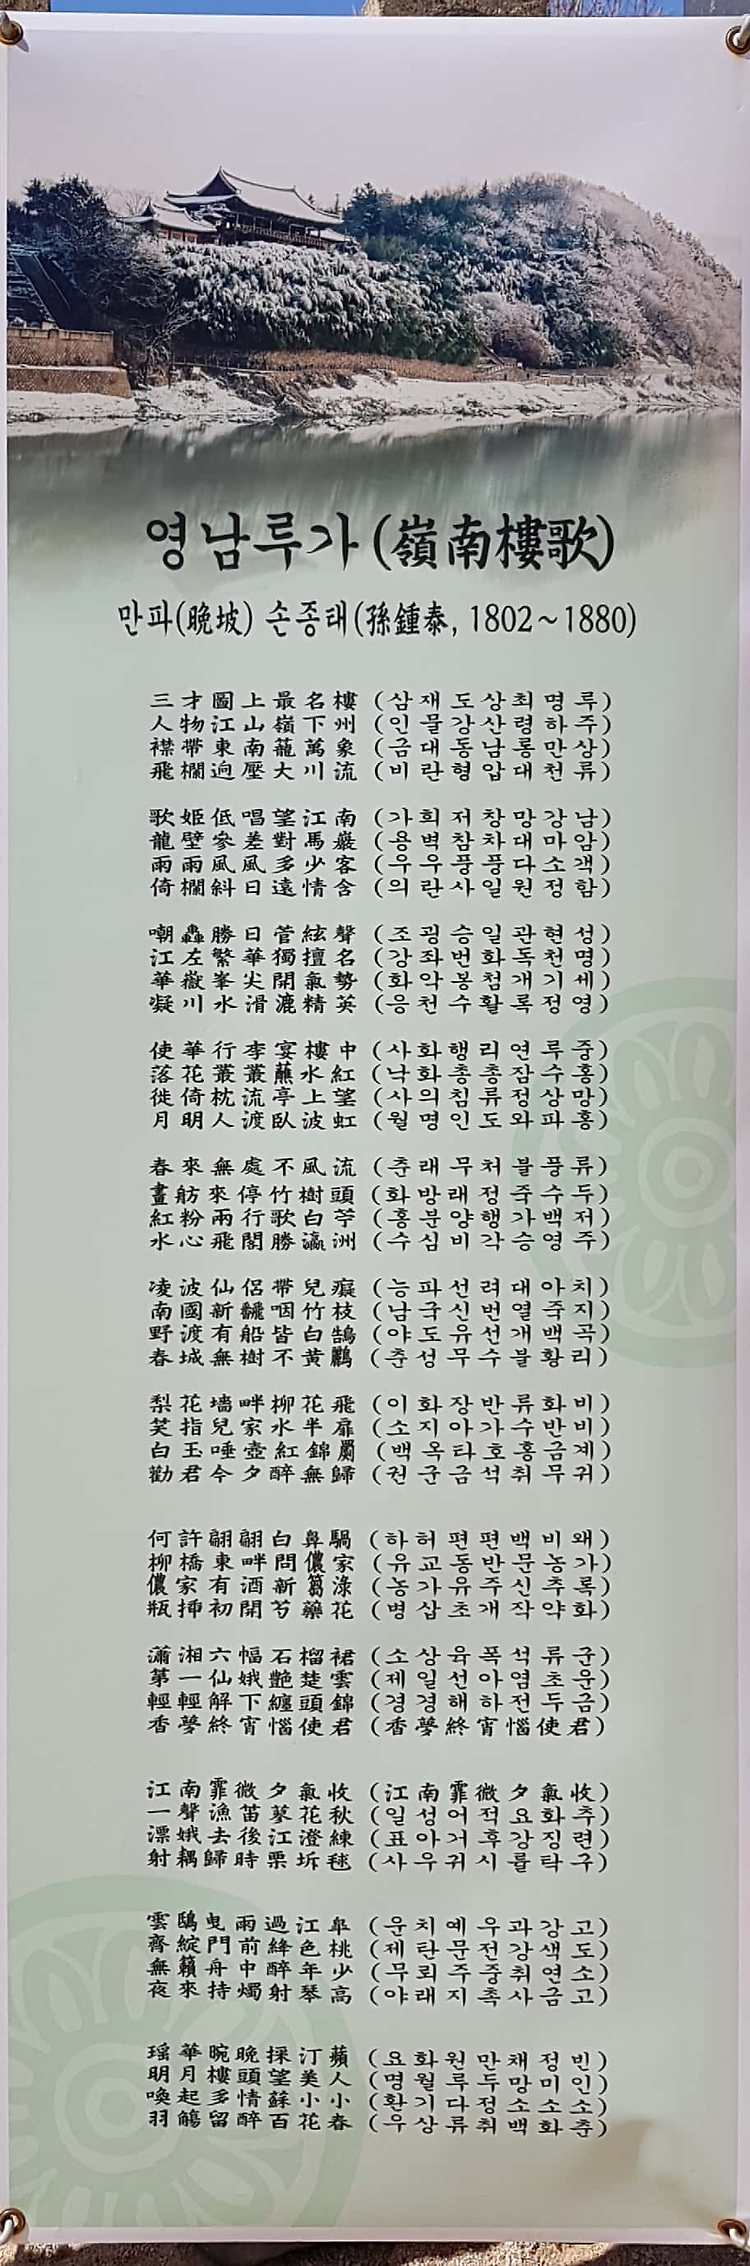 영남루가(嶺南樓歌)
만파(晩坡) 손종태(孫鍾泰, 1802~1880)
三才圖上最名樓 (삼재도상최명루)
人物江山嶺下州 (인물강산령하주)
襟帶東南蘢萬象 (금대동남롱만상)
飛欄逈壓大川流 (비란형압대천류)
歌姬低唱望江南 (가희저창망강남)
龍壁參差對馬巖 (용벽참차대마암)
雨雨風風多少客 (우우풍풍다소객)
倚欄斜日遠情含 (의란사일원정함)
嘲轟勝日管絃聲 (조굉승일관현성)
江左繁華獨擅名 (강좌번화독천명)
華嶽峯尖開氣勢 (화악봉첨개기세)
凝川水滑漉精英 (응천수활록정영)
使華行李宴樓中 (사화행리연루중)
落花叢叢蘸水紅 (낙화총총잠수홍)
徙倚枕流亭上望 (사의침류정상망)
月明人渡臥波虹 (월명인도와파홍)
春來無處不風流 (춘래무처불풍류)
畫舫來停竹樹頭 (화방래정죽수두)
紅粉兩行歌白苧 (홍분양행가백저)
水心飛閣勝瀛洲 (수심비각승영주)
凌波仙侶帶兒癡 (능파선려대아치)
南國新飜咽竹枝 (남국신번열죽지)
野渡有船皆白鵠 (야도유선개백곡)
春城無樹不黄鸝 (춘성무수불황리)
梨花墻畔柳花飛 (이화장반류화비)
笑指兒家水半扉 (소지아가수반비)
白玉唾壺紅錦罽 (백옥타호홍금계)
勸君今夕醉無歸 (권군금석취무귀)
何許翩翩白鼻騧 (하허편편백비왜)
柳橋東畔問儂家 (유교동반문농가)
儂家有酒新篘淥 (농가유주신추록)
瓶揷初開芍藥花 (병삽초개작약화)
瀟湘六幅石榴裙 (소상육폭석류군)
第一仙娥艶楚雲 (제일선아염초운)
輕輕解下纏頭錦 (경경해하전두금)
香夢終宵惱使君 (香夢終宵惱使君)
江南霏微夕氣收 (江南霏微夕氣收)
一聲漁笛蓼花秋 (일성어적요화추)
漂娥去後江澄練 (표아거후강징련)
射耦歸時栗坼毬 (사우귀시률탁구)
雲鴟曳雨過江皐 (운치예우과강고)
齊綻門前絳色桃 (제탄문전강색도)
無賴舟中醉年少 (무뢰주중취연소)
夜來持燭射琴高 (야래지촉사금고)
瑶華晼晚採汀蘋 (요화원만채정빈)
明月樓頭望美人 (명월루두망미인)
喚起多情蘇小小 (환기다정소소소)
羽觴留醉百花春 (우상류취백화춘)